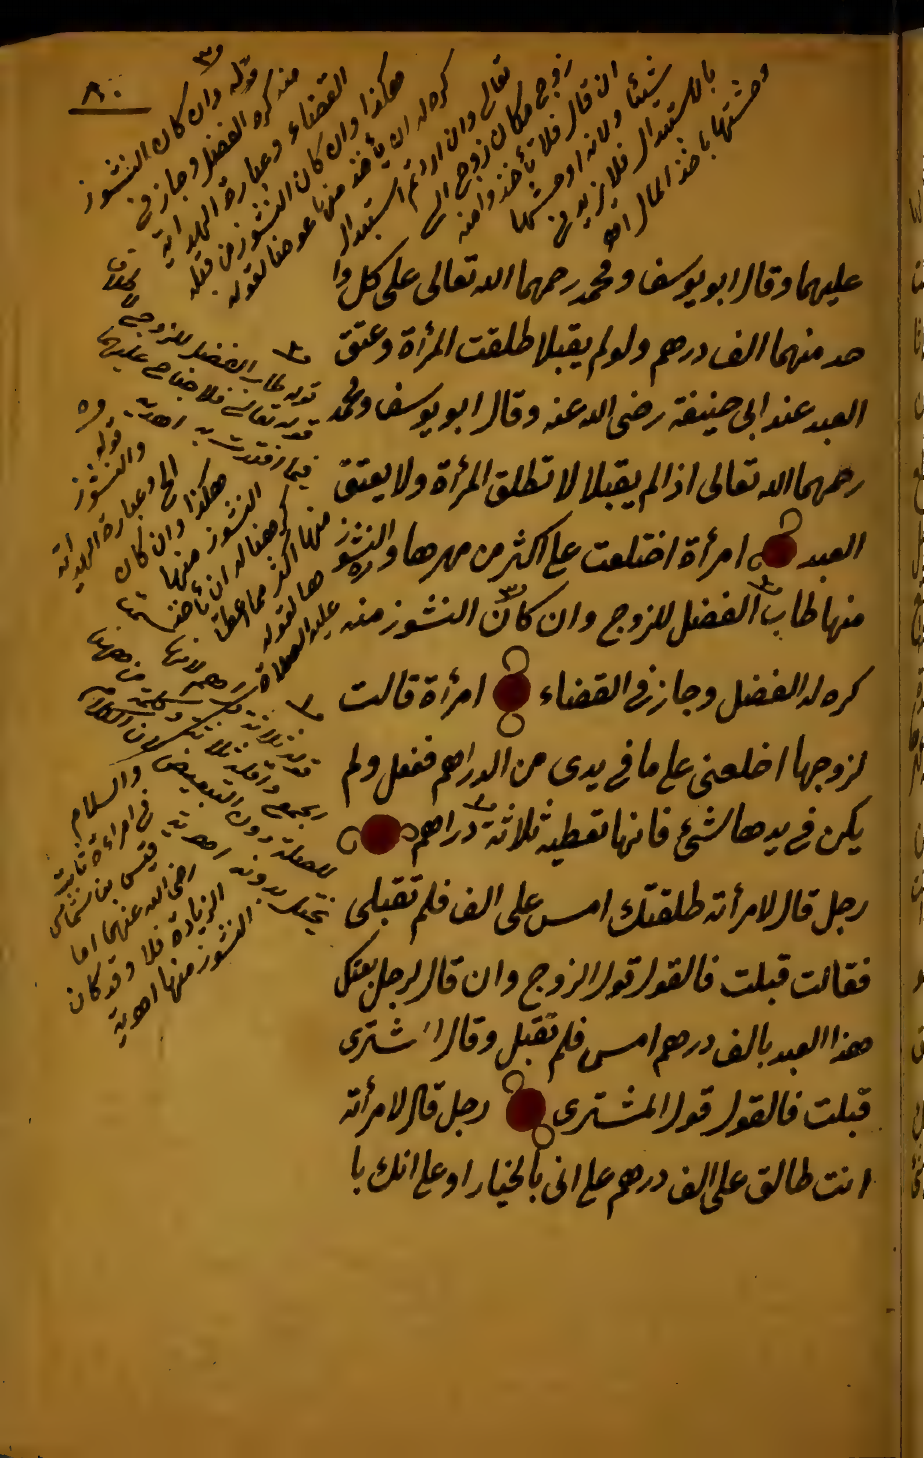 ٨٠
عليهما وقال ابو يوسف ومحمد رحمهما الله تعالى على كل وا
حد منهما الف درهم ولو لم يقبلا طلقت المرأة وعتق
العبد عند ابى حنيفة رضى الله عنه وقال ابو يوسف ومحمد
رحمهما الله تعالى اذا لم يقبلا لا تطلق المرأة ولا يعتق
العبد امرأة اختلعت على اكثر من مهرها والنشوز
منها طاب الفضل للزوج وان كان النشوز منه
كره له الفضل وجاز فى القضاء امرأة قالت
لزوجها اخلعنى على ما فى يدى من الدراهم ففعل ولم
يكن فى يدها شئ فانها تعطيه ثلاثة دراهم
رجل قال لامرأته طلقتك امس على الف فلم تقبلى
فقالت قبلت فالقول قول الزوج وان قال لرجل بعتك
هذا العبد بالف درهم امس فلم تقبل وقال اشترى
قبلت فالقول قول المشترى رجل قال لامرأته
انت طالق على الف درهم على انى بالخيار او على انك با
قوله وان كان النشوز
منه كره الفضل وجاز فى
القضاء وعبارة الهداية
هكذا وان كان النشوز من قبله
كره له ان يأخذ منها عوضا لقوله
تعالى وان اردتم استبدال
زوج مكان زوج الى
ان قال فلا تأخذوا منه
شيئا ولانه اوحشها
بالاستبدال فلا يزيد فى
وحشتها باخذ المال اهـ
قوله طاب الفضل للزوج
قوله تعالى فلا جناح عليهما
فيما افتدت به
قوله
والنشوز
الخ وعبارة الهداية
هكذا وان كان
النشوز منها
كرهنا له ان يأخذ
منها اكثر مما اعطا
ها لقوله
عليه الصلاة
والسلام
فى امراءة ثابت
قيس بن شماس
رضى الله عنهما اما
الزيادة فلا وقد كان
النشوز منها